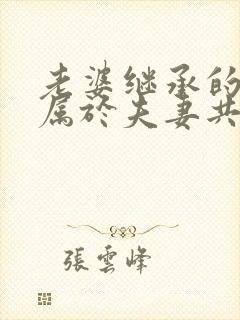 老婆继承的
属於夫妻共
張雲峰